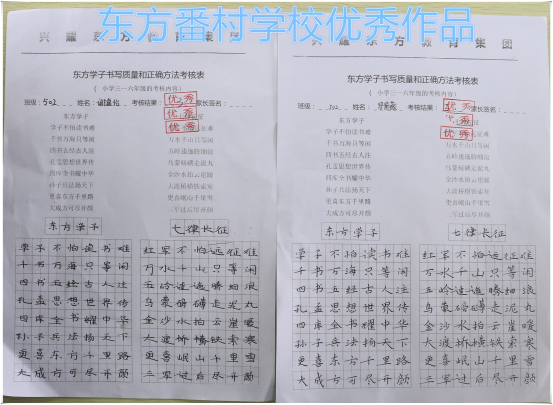 东方番村学校优秀作品
兴 耀 东 方 教 育 集 团
东方学子书写质量和正确方法考核表
(小学三一六年级的考核内容)
班级: 502 姓名 考核结果: 优秀 家长签名:
优秀
优秀
东方学子
学子不怕读书难
千书万海只等闲 万水千山只等闲
四书五经古人注 五岭逶迤腾细浪
孔孟思想世界传 乌蒙磅礴走泥丸
四库全书耀中华 金沙水拍云崖暖
孙子兵法扬天下 大渡桥横铁索寒
更喜东方千里路 更喜岷山千里雪
大成方可尽开颜 三军过后尽开颜
东方学子 七律长征
学子不怕读书难 红军不怕远征难
千书万海只等闲 万水千山只等闲
四书五经古人注 五岭逶迤腾细浪
孔孟思想世界传 乌蒙磅礴走泥丸
四库全书耀中华 金沙水拍云崖暖
孙子兵法扬天下 大渡桥横铁索寒
更喜东方千里路 更喜岷山千里雪
大成方可尽开颜 三军过后尽开颜
兴 耀 东 方 教 育 集 团
东方学子书写质量和正确方法考核表
(小学三一六年级的考核内容)
班级: 姓名 考核结果: 优秀 家长签名:
优秀
优秀
东方学子
学子不怕读书难
千书万海只等闲 万水千山只等闲
四书五经古人注 五岭逶迤腾细浪
孔孟思想世界传 乌蒙磅礴走泥丸
四库全书耀中华 金沙水拍云崖暖
孙子兵法扬天下 大渡桥横铁索寒
更喜东方千里路 更喜岷山千里雪
大成方可尽开颜 三军过后尽开颜
东方学子 七律长征
学子不怕读书难 红军不怕远征难
千书万海只等闲 万水千山只等闲
四书五经古人注 五岭逶迤腾细浪
孔孟思想世界传 乌蒙磅礴走泥丸
四库全书耀中华 金沙水拍云崖暖
孙子兵法扬天下 大渡桥横铁索寒
更喜东方千里路 更喜岷山千里雪
大成方可尽开颜 三军过后尽开颜